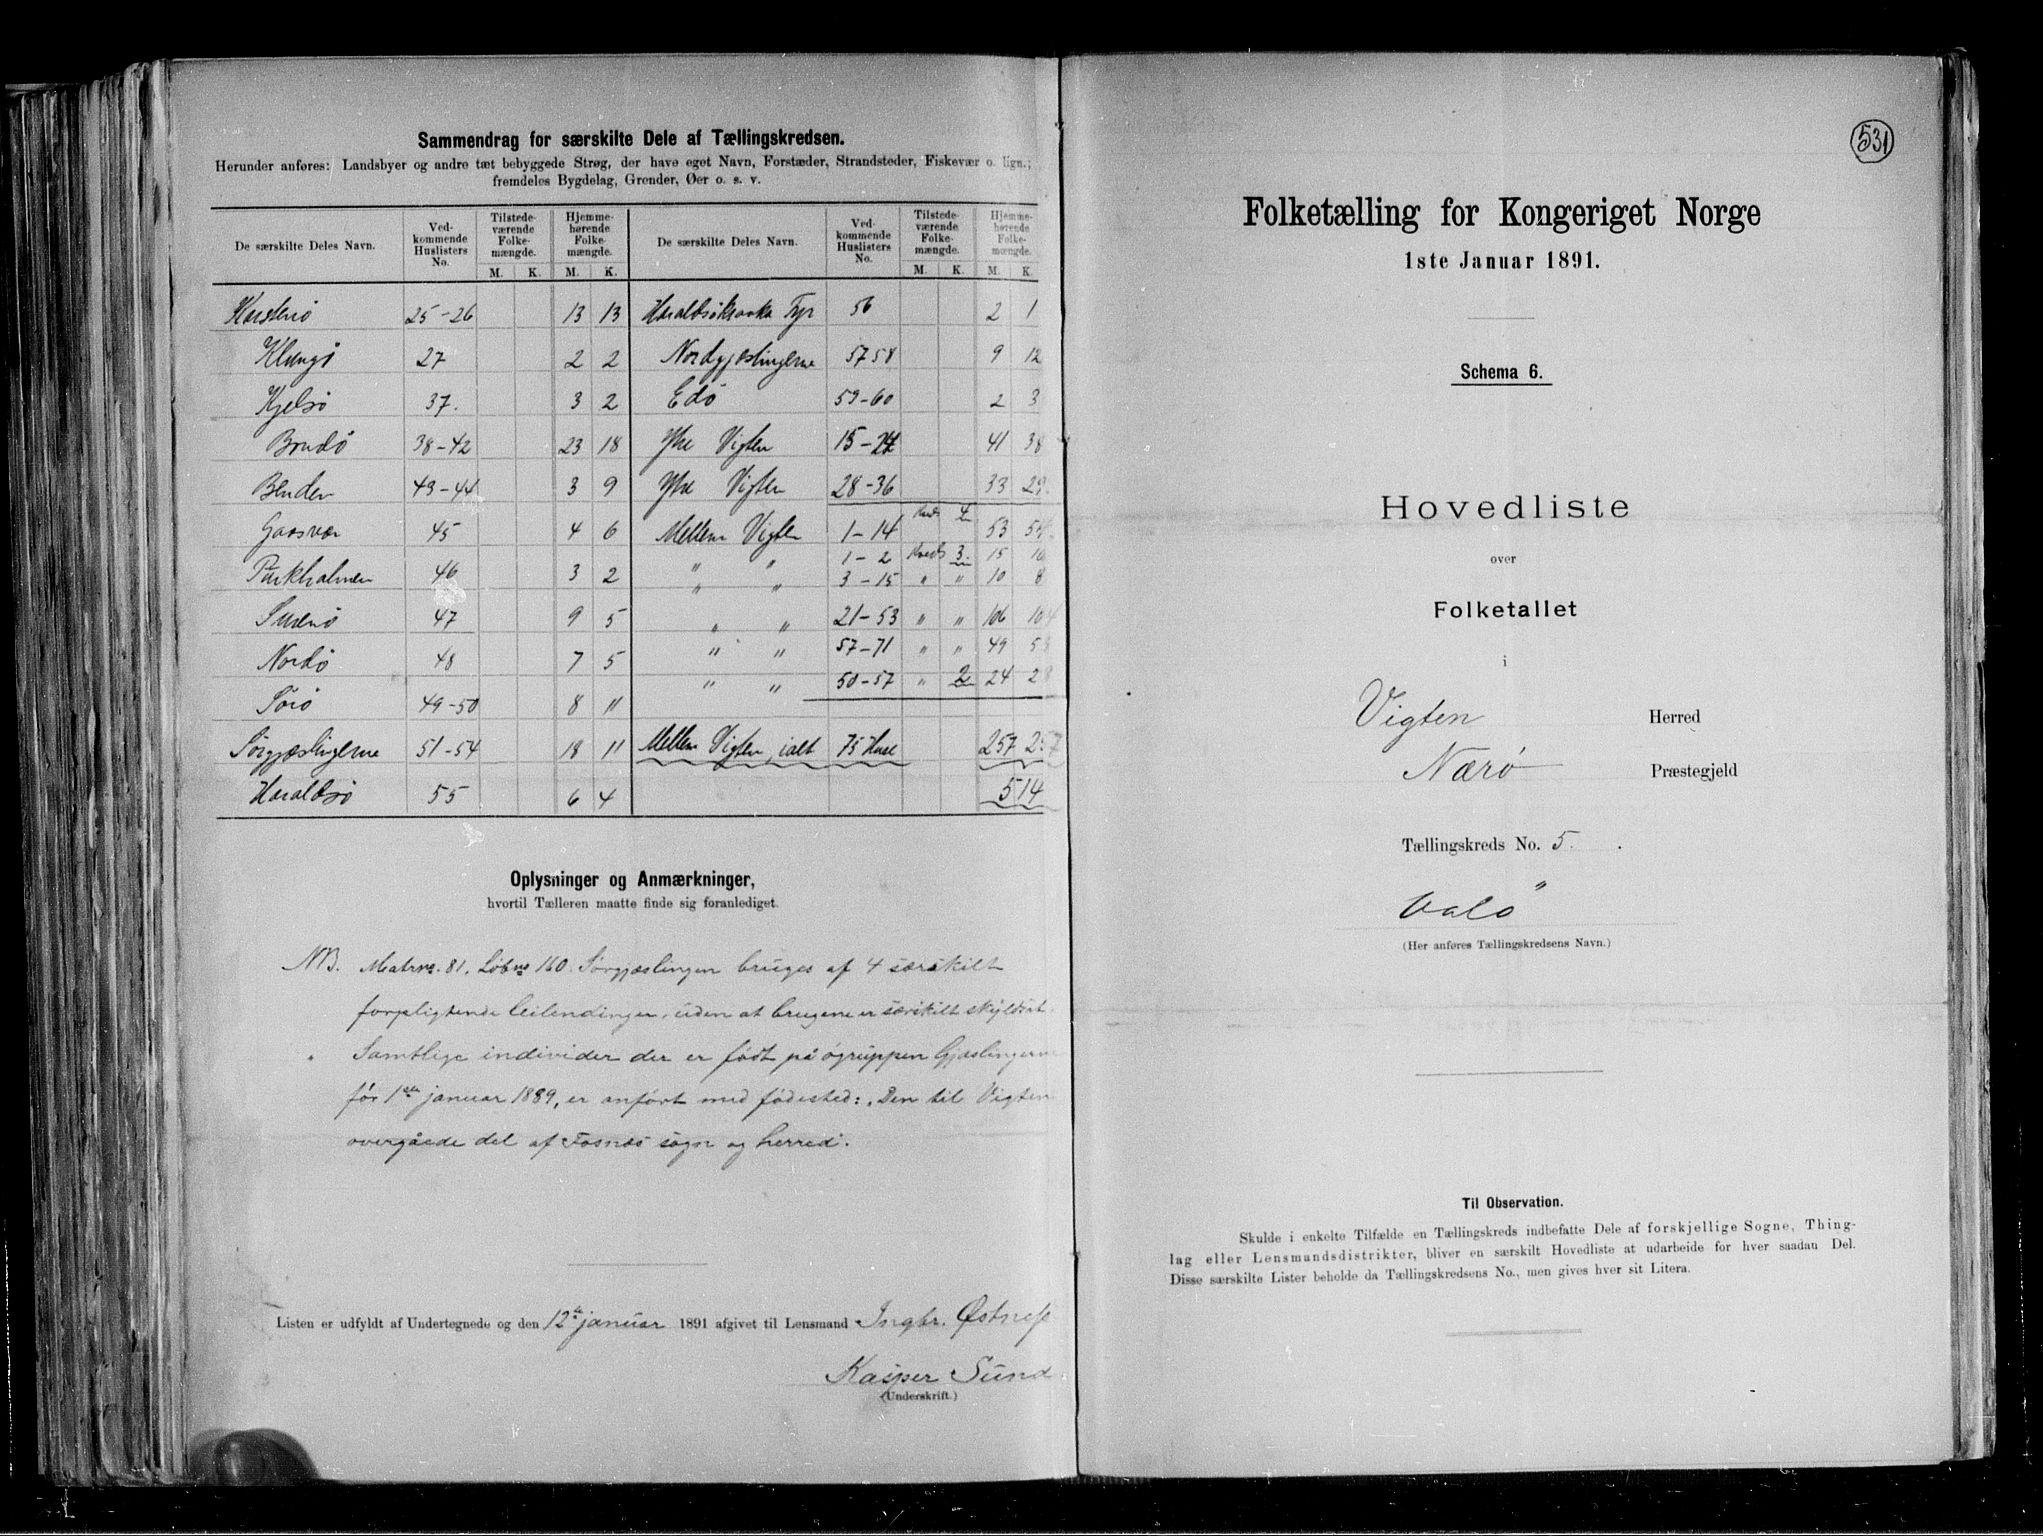 Sammendrag for særskilte Dele af Tællingskredsen.
Herunder anføres: Landsbyer og andre tæt bebyggede Strøg, der have eget Navn, Forstæder, Strandsteder, Fiskevær o. lign.;
fremdeles Bygdelag, Grender, Øer o. s. v.
De særskilte Deles Navn. Ved-kommende Huslisters No. Tilstede-værende Folke-mængde. M. K. Hjemme-hørende Folke-mængde. M. K. De særskilte Deles Navn. Ved-kommende Huslisters No. Tilstede-værende Folke-mængde. M. K. Hjemme-hørende Folke-mængde. M. K.
25-26 13 13 Fyr 56 2 1
Klungø 27 2 2 Nordgjæslingerne 57 58 9 12
Kjelsø 37. 3 2 Edø 59-60 2 3
Brudø 38-42 23 18 Ytre Vigten 15-24 41 38
Benden 43-44 3 9 Ytre Vigten 28-36 33 29
Gaasvær 45 4 6 Mellem Vigten 1-14 Kreds 4 53
1-2 Kreds 3. 15
46 3 2 " " 3-15 " " 10 8
47 9 5 " " 21-53 " " 106 104
Nordø 48 7 5 " " 57-71 " " 49 53
Sørø 49-50 8 11 " " 50-57 " 2 24 28
Sørgjæslingerne 51-54 18 11 Mellem Vigten, ialt 75 Huse 257 257
Haraldsø 55 6 4 514
Oplysninger og Anmærkninger,
hvortil Tælleren maatte finde sig foranlediget.
NB. Matrno. 81. Løbno 160. Sørgjæslingen bruges af 4 særskilt
forpligtende leilendinger, uden at brugene er særskilt skyldsat.
" Samtlige individer der er født på øgruppen Gjæslingerne
før 1ste januar 1889, er anført med fødested: "Den til Vigten
overgåede del af Fosnæs sogn og herred".
Listen er udfyldt af Undertegnede og den 12te januar 1891 afgivet til Lensmand Ingbr. Østness
Kasper Sund
(Underskrift.)
531
Folketælling for Kongeriget Norge
1ste Januar 1891.
Schema 6.
Hovedliste
over
Folketallet
i
Vigten Herred
Nærø Præstegjeld
Tællingskreds No. 5.
Valø
(Her anføres Tællingskredsens Navn.)
Til Observation.
Skulde i enkelte Tilfælde en Tællingskreds indbefatte Dele af forskjellige Sogne, Thing-
lag eller Lensmandsdistrikter, bliver en særskilt Hovedliste at udarbeide for hver saadan Del.
Disse særskilte Lister beholde da Tællingskredsens No., men gives hver sit Litera.